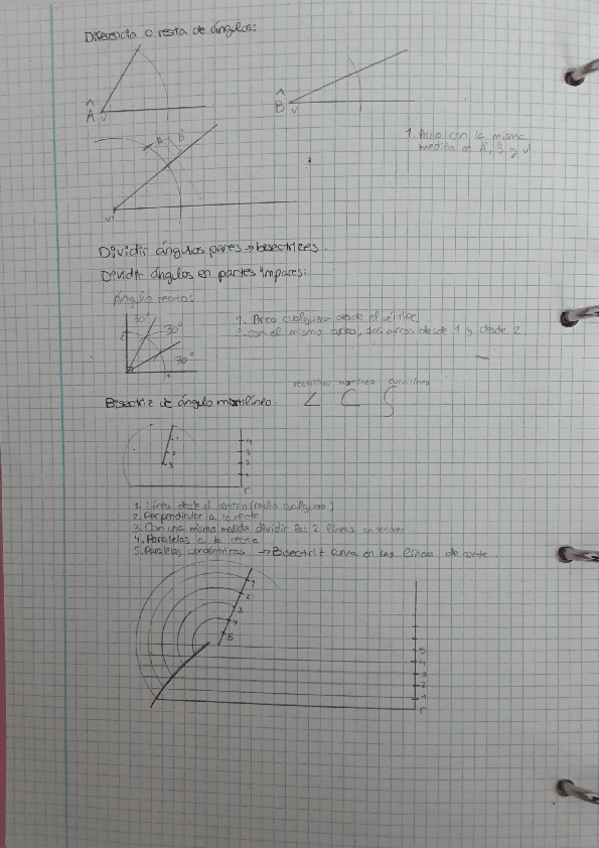 Diferencia o resta de ángulos:
Â V
B̂ V
A B
1. Arco con la misma
medida en A, B y V
V
Dividir ángulos pares → bisectrices.
Dividir ángulos en partes impares:
Ángulo recto:
30°
30°
30°
2
1
1. Arco cualquiera desde el vértice
2. con el mismo arco, dos arcos desde 1 y desde 2.
rectilíneo mixtilíneo curvilíneo
Bisectriz de ángulo mixtilíneo.
1
2
3
4
3
2
1
r
1. Línea desde el centro (radio cualquiera)
2. Perpendicular a la recta
3. Con una misma medida dividir las 2 líneas
4. Paralelas a la recta
5. Paralelas concéntricas → Bisectriz curva en las líneas de corte.
1
2
3
4
5
5
4
3
2
1
r